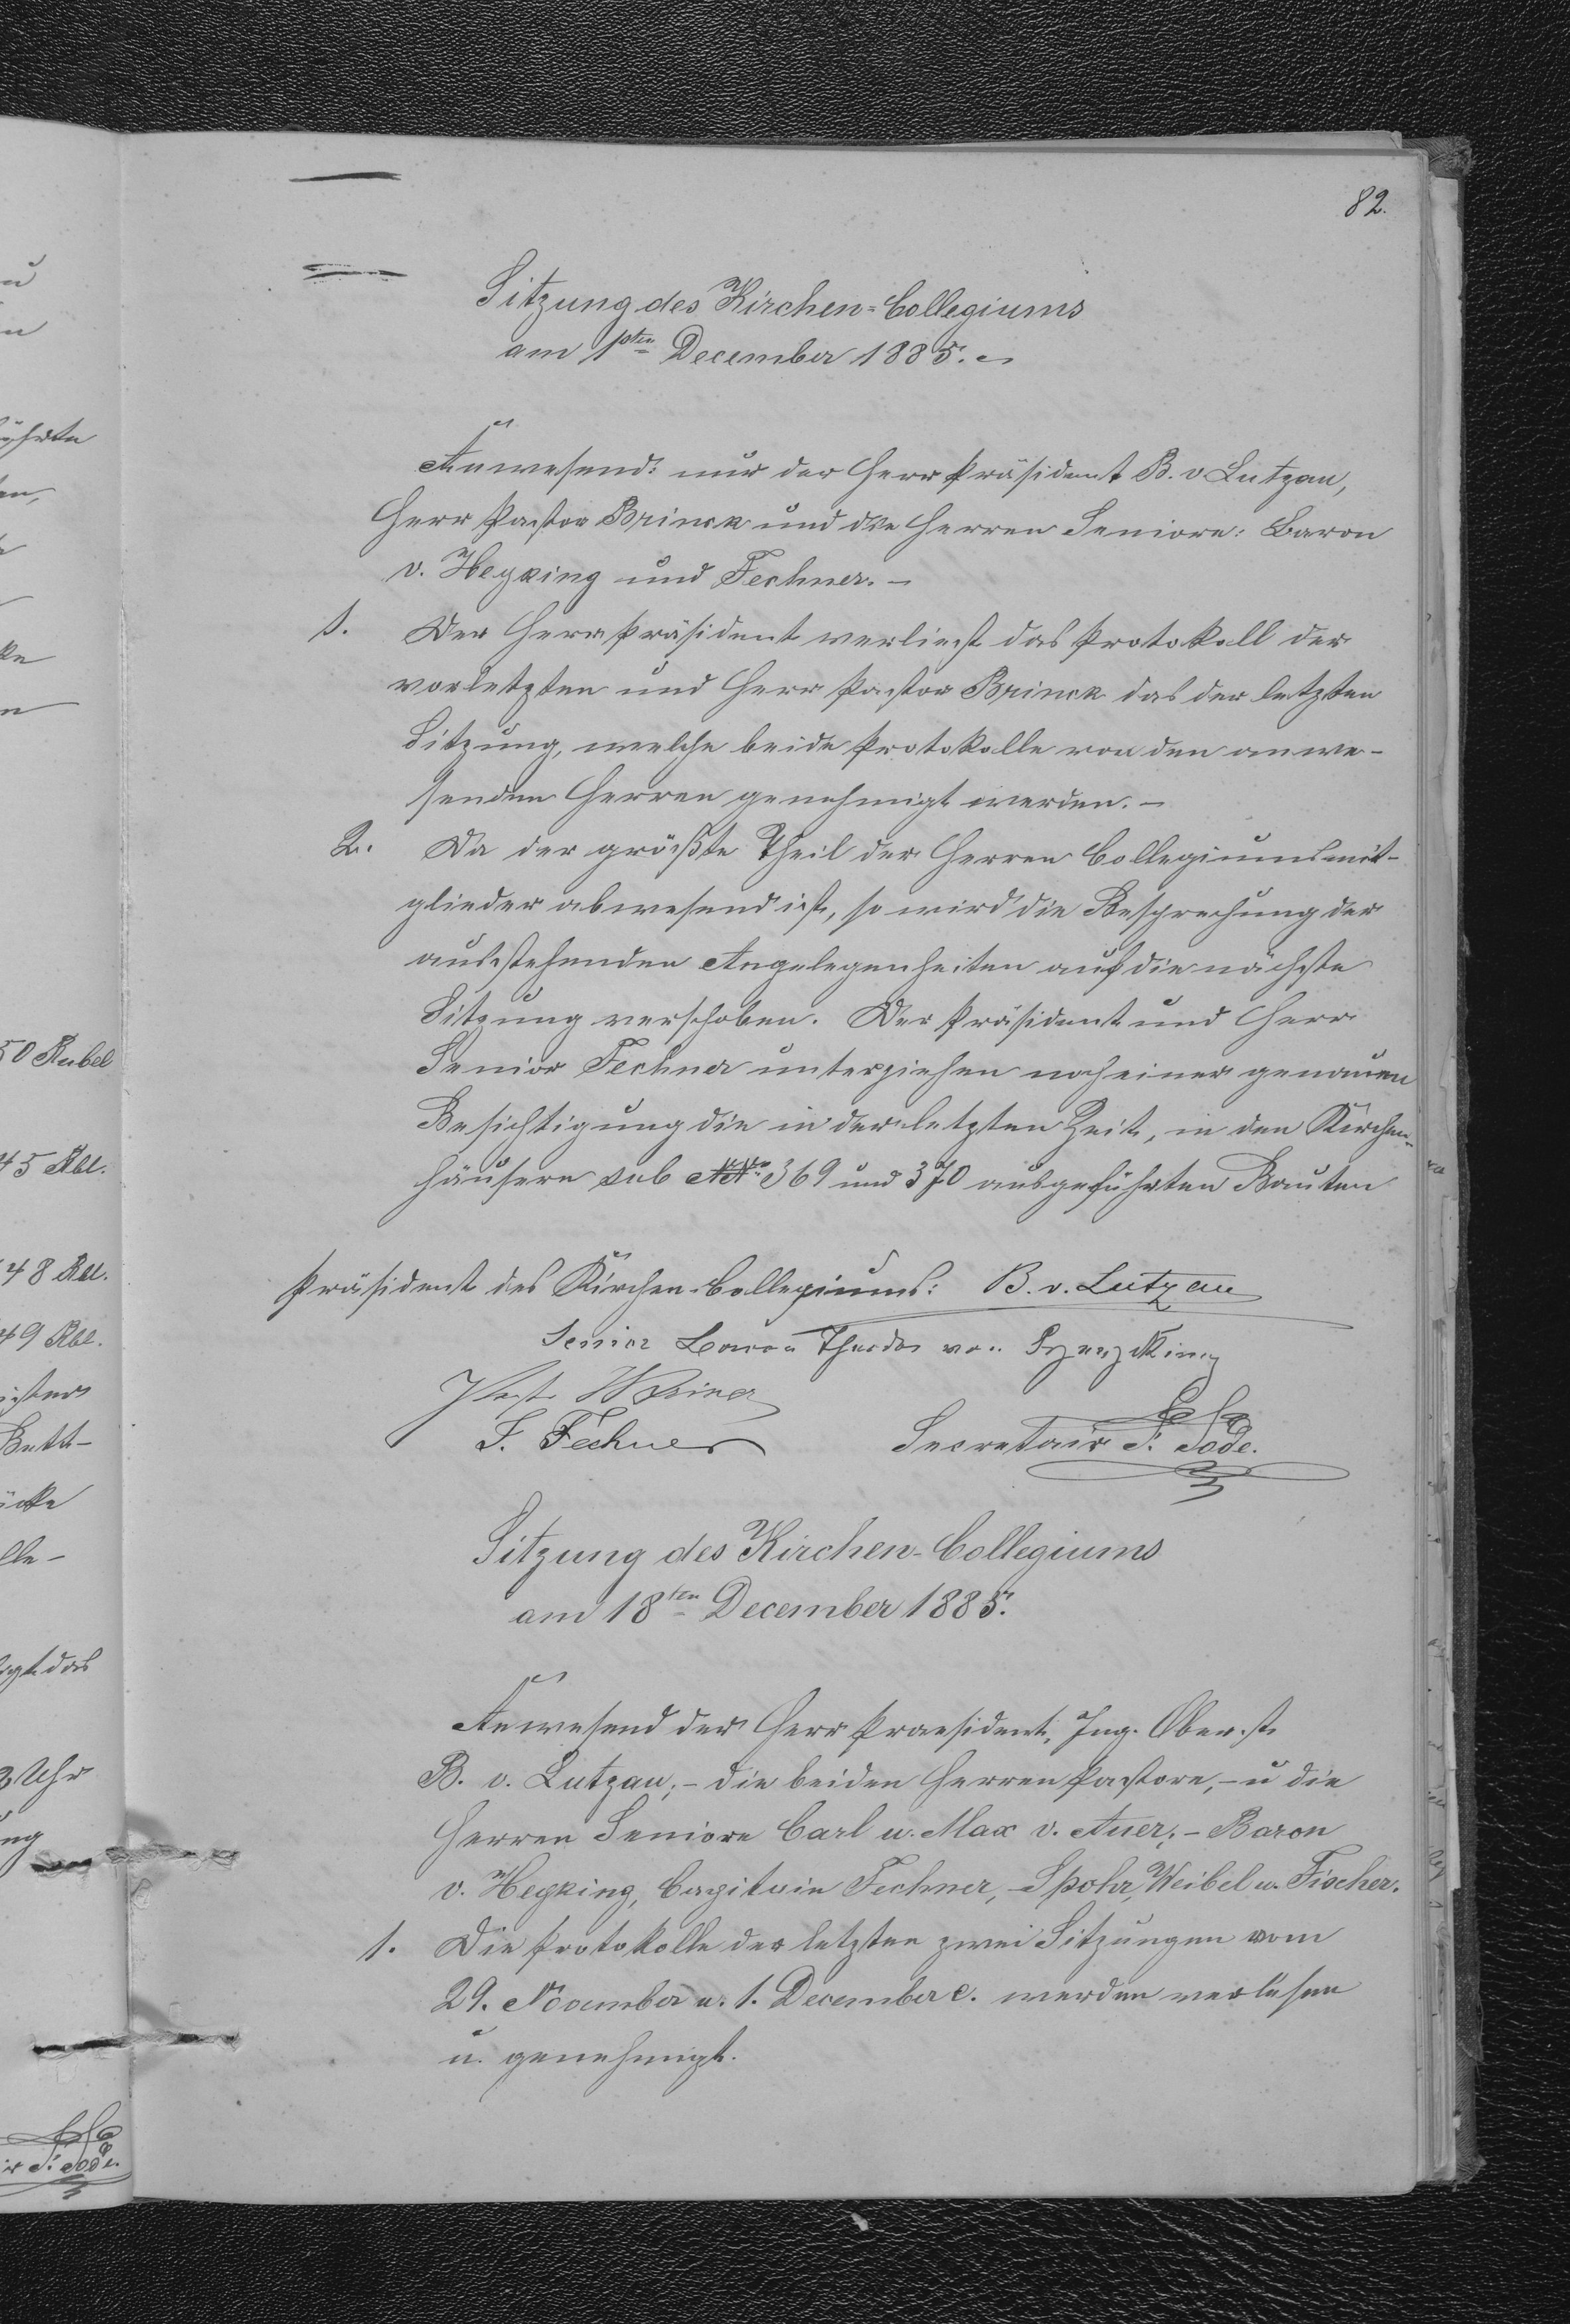 82.
Sitzung des Kirchen-Collegiums
am 1sten December 1885.
Anwesend: nur der Herr Präsident B. v Lutzau,
Herr Pastor Brinck und die Herren Seniore: Baron
v. Heyking und Fechner. -
1. Der Herr Präsident verliest das Protokoll der
vorletzten und Herr Pastor Brinck das der letzten
Sitzung, welche beide Protokolle von den anwe-
senden Herren genehmigt werden. -
2. Da der größte Theil der Herren Collegiumsmit-
glieder abwesend ist, so wird die Besprechung der
ausstehenden Angelegenheiten auf die nächste
Sitzung verschoben. Der Präsident und Herr
Senior Fechner unterziehen noch einer genauen
Besichtigung die in der letzten Zeit, in den Kirchen-
häusern sub NNo 369 und 370 ausgeführten Bauten
Präsident des Kirchen-Collegiums: B. v. Lutzau
Senior Baron von
F. Fechner
Secretair S. Jode.
Sitzung des Kirchen-Collegiums
am 18ten December 1885.
Anwesend der Herr Praesident, Ing. Oberst
B. v. Lutzau; - die beiden Herren Pastore, - u die
Herren Seniore Carl u. Max v. Auer; - Baron
v. Heyking, Capitain Fechner, - Spohr, Weibel u. Fischer.
1. Die Protokolle der letzten zwei Sitzungen vom
29. November u. 1. December c. werden verlesen
u. genehmigt.
50 Rubel
45 Rbl.
48 Rbl.
49 Rbl.
Uhr